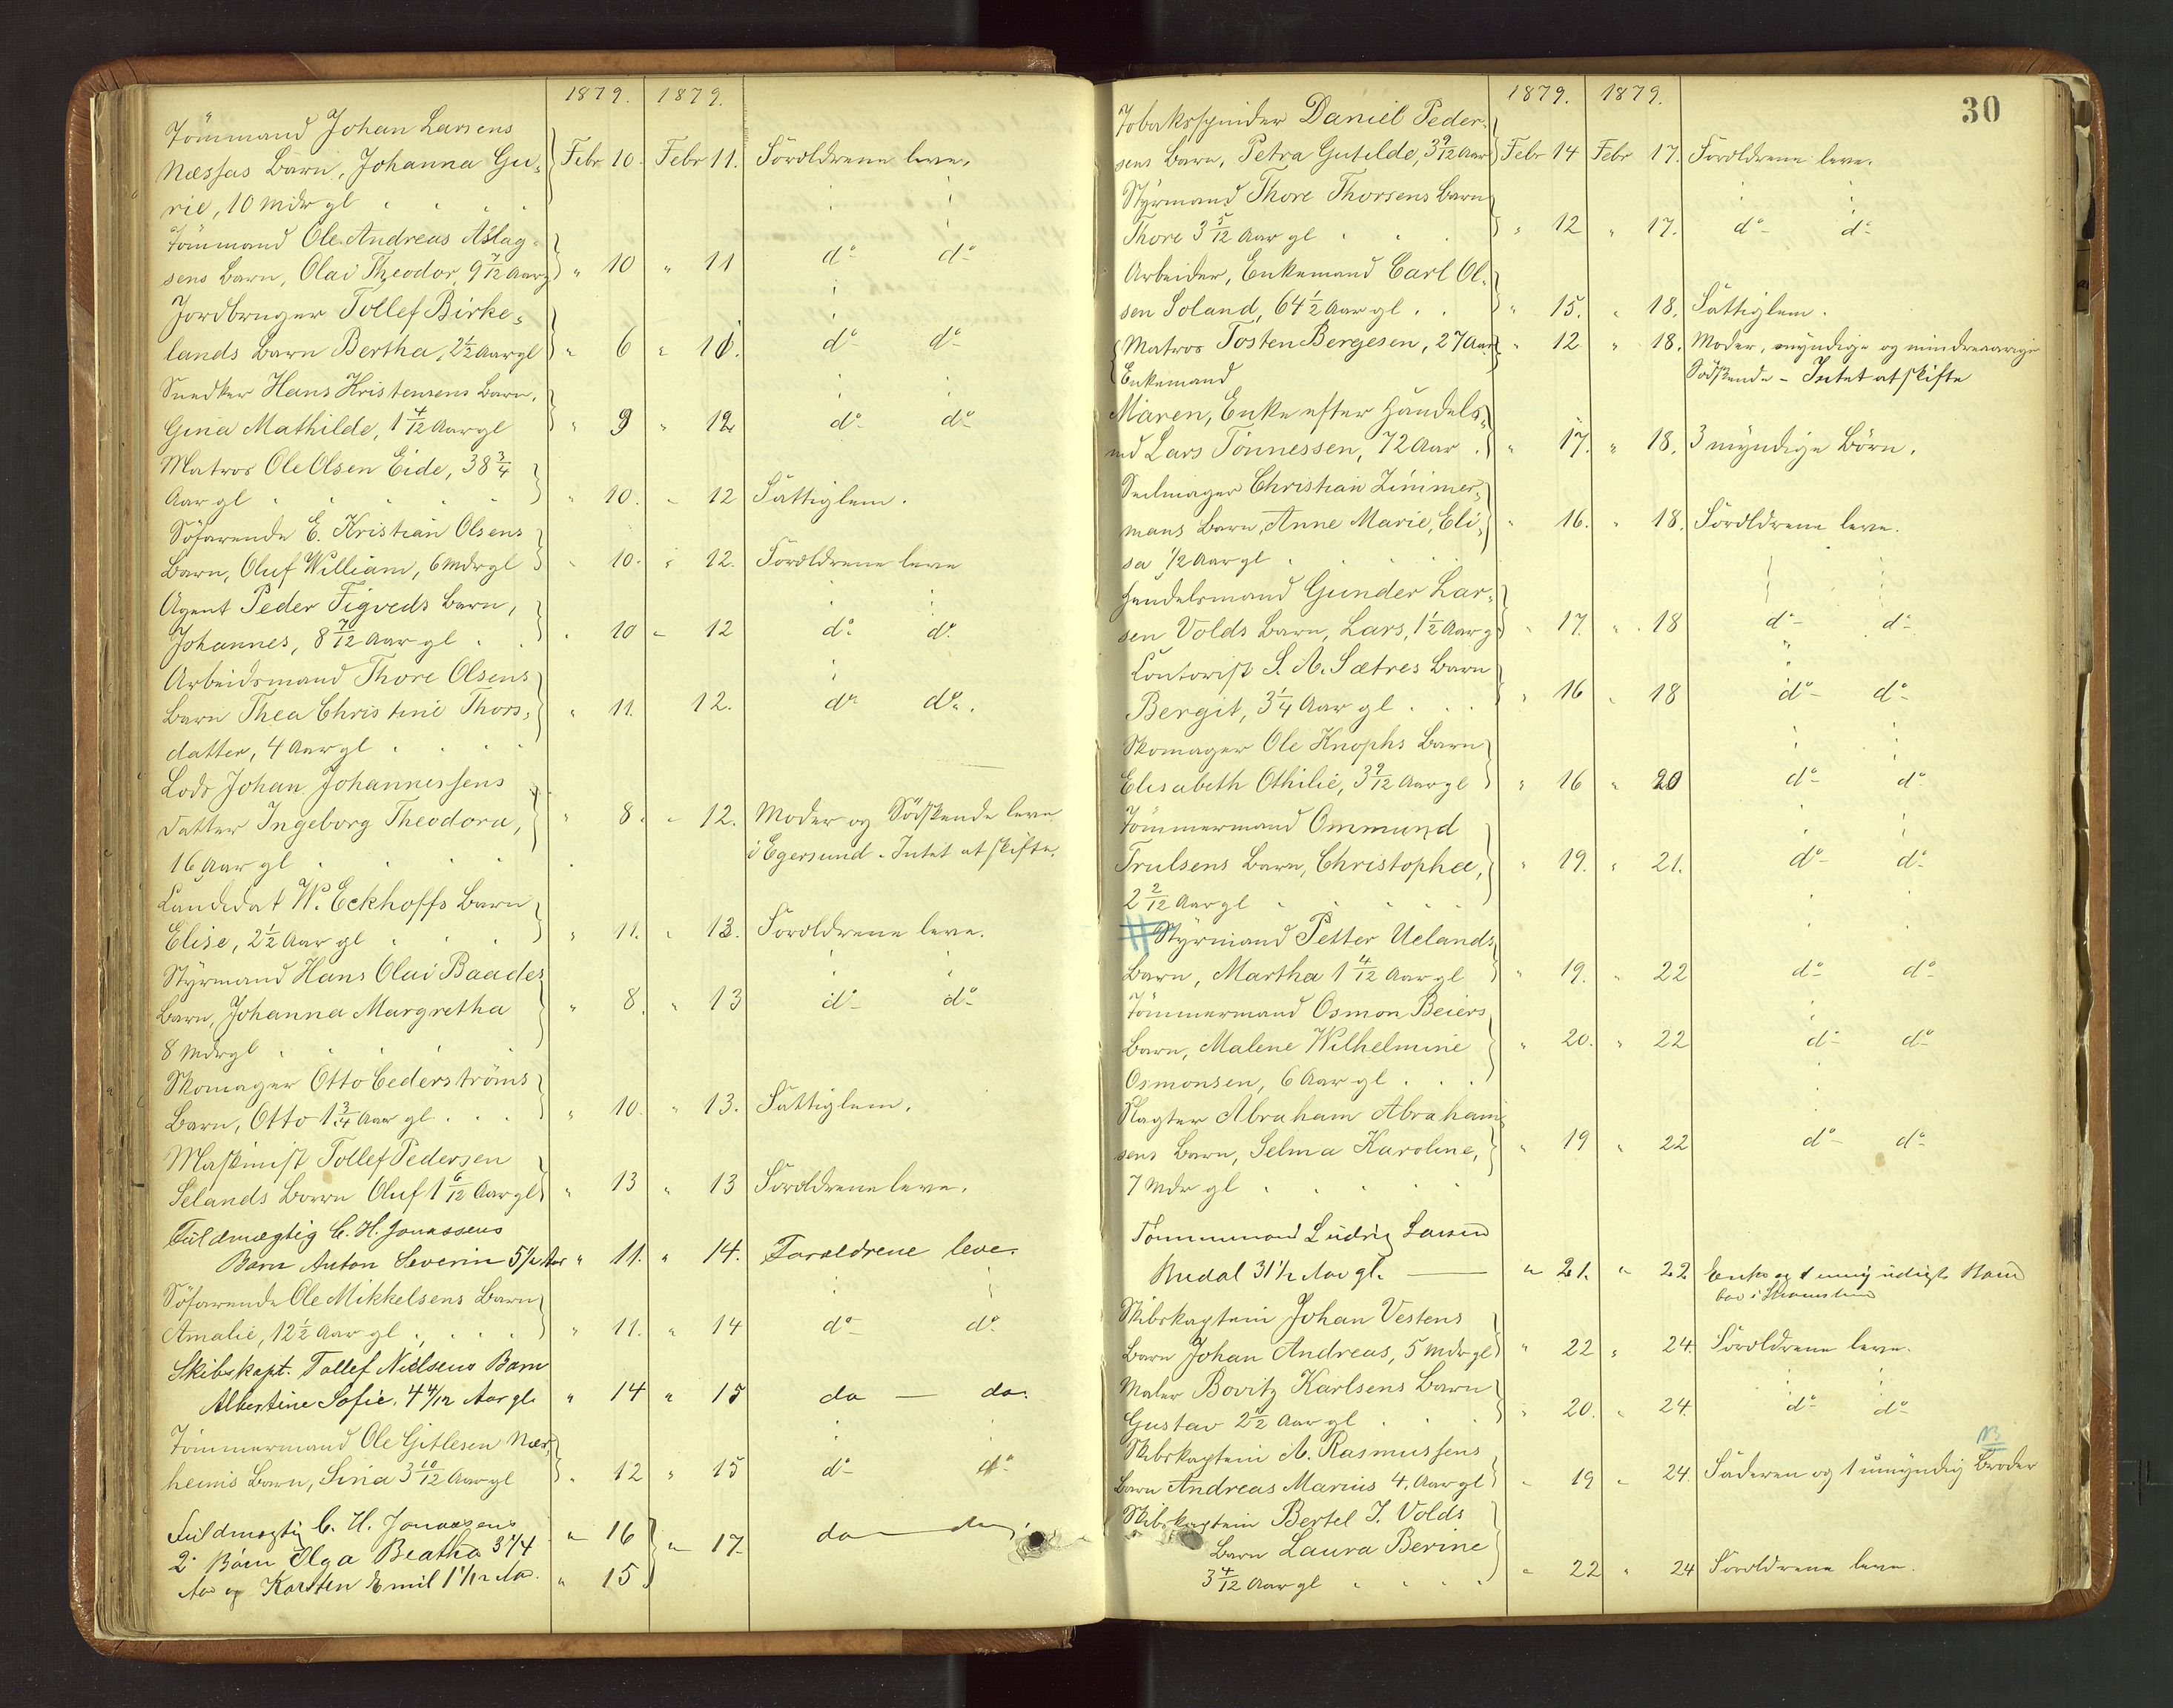 1879. 1879.
Tömmand Johan Larsens
Næssas Barn, Johanna Gu- Febr 10. Febr 11. Foroldrene leve.
rie, 10 Mdr gl
Tömmand Ole Andreas Aslag-
sens Barn, Olai Theodor, 9 7/12 Aar gl " 10 " 11 do do
Jordbruger Tollef Birke-
lands Barn Bertha, 2 1/2 Aar gl " 6 " 11. do do
Snedker Hans Kristensens Barn,
Gina Mathilde, 1 4/12 Aar gl " 9 " 12 do do
Matros Ole Olsen Eide, 38 3/4
Aar gl " 10. " 12 Fattiglem.
Söfarende E. Kristian Olsens
Barn, Oluf William, 6 Mdr gl " 10. " 12. Foroldrene leve
Agent Peder Tigveds Barn,
Johannes, 8 7/12 Aar gl " 10 " 12 do do
Arbeidsmand Thore Olsens
Barn Thea Christine Thors- " 11. 12. do do.
datter, 4 Aar gl
Lods Johan Johannessens
Datter Ingeborg Theodora, " 8. " 12. Moder og Södskende leve
16 Aar gl i Egersund. Intet at skifte.
Candidat W. Eckhoffs Barn
Elise, 2 1/2 Aar gl " 11. " 13. Foroldrene leve.
Styrmand Hans Olai Baades
Barn, Johanna Margretha " 8. " 13 do do
8 Mdr gl
Skomager Otto Cederströms
Barn, Otto 1 3/4 Aar gl " 10. " 13. Fattiglem.
Maskinist Tollef Pedersen
Selands Barn Oluf 1 6/12 Aar gl " 13 " 13 Foroldrene leve.
Fuldmægtig C. H. Jonassens
Barn Anton Severin 5 1/2 Aar " 11. " 14. Foroldrene leve.
Söfarende Ole Mikkelsens Barn
Amalie, 12 1/2 Aar gl " 11. " 14 do do
Skibskapt. Tollef Nielsens Barn
Albertine Sofie, 4 4/12 Aar gl. " 14 " 15 do — do.
Tömmermand Ole Gitlesen Nær-
heims Barn, Sina 3 10/12 Aar gl " 12 " 15 do do
Fuldmægtig C. H. Jonassens " 16
2 Börn Olga Beatha 3 1/4 " 17. do do
Aar og Karsten Emil 1 1/12 Aar. " 15
1879. 1879. 30
Tobakspinder Daniel Peder-
sens Barn, Petra Gutilde, 3 9/12 Aar Febr 14 Febr 17. Foroldrene leve.
Styrmand Thore Thorsens Barn
Thore 3 5/12 Aar gl " 12 " 17. do do
Arbeider, Enkemand Carl Ol-
sen Soland, 64 1/2 Aar gl " 15. " 18. Fattiglem.
Matros Tosten Bergesen, 27 Aar " 12 " 18. Moder, myndige og mindreaarige
Enkemand Södskende - Intet at skifte
Maren, Enke efter Handels-
md Lars Tönnessen, 72 Aar " 17. " 18. 3 myndige Börn.
Seilmager Christian Zimmer-
mans Barn, Anne Marie, Eli- " 16. " 18. Foroldrene leve.
sa, 1/2 Aar gl
Handelsmand Gunder Lar-
sen Volds Barn, Lars, 1 1/2 Aar gl " 17. " 18 do do
Contorist S. A. Sætres Barn
Bergit, 3 1/4 Aar gl " 16 " 18 do do
Skomager Ole Knophs Barn
Elisabeth Othilie, 3 9/12 Aar gl " 16 " 20 do do
Tömmermand Ommund
Trulsens Barn, Christopha, " 19. " 21. do do
2 2/12 Aar gl
Styrmand Petter Uelands
Barn, Martha 1 4/12 Aar gl " 19. " 22 do do
Tömmermand Osmon Beiers
Barn, Malene Wilhelmine " 20. " 22 do do
Osmonsen, 6 Aar gl
Slagter Abraham Abraham-
sens Barn, Selma Karoline, " 19 " 22 do do
7 Mdr gl
Tömmermand Ludvig Larsen
31 1/2 Aar gl. " 21. " 22 Enke og 1 umyndigt Barn
boe i
Skibskaptein Johan Vestens
Barn Johan Andreas, 5 Mdr gl " 22 " 24. Foroldrene leve.
Maler Bovitz Karlsens Barn
Gustav 2 1/2 Aar gl " 20. " 24. do do
Skibskaptein A. Rasmussens NB
Barn Andreas Marius 4. Aar gl " 19 " 24. Faderen og 1 umyndig Broder
Skibskaptein Bertel T. Volds
Barn Laura Berine
3 4/12 Aar gl " 22 " 24 Foroldrene leve.